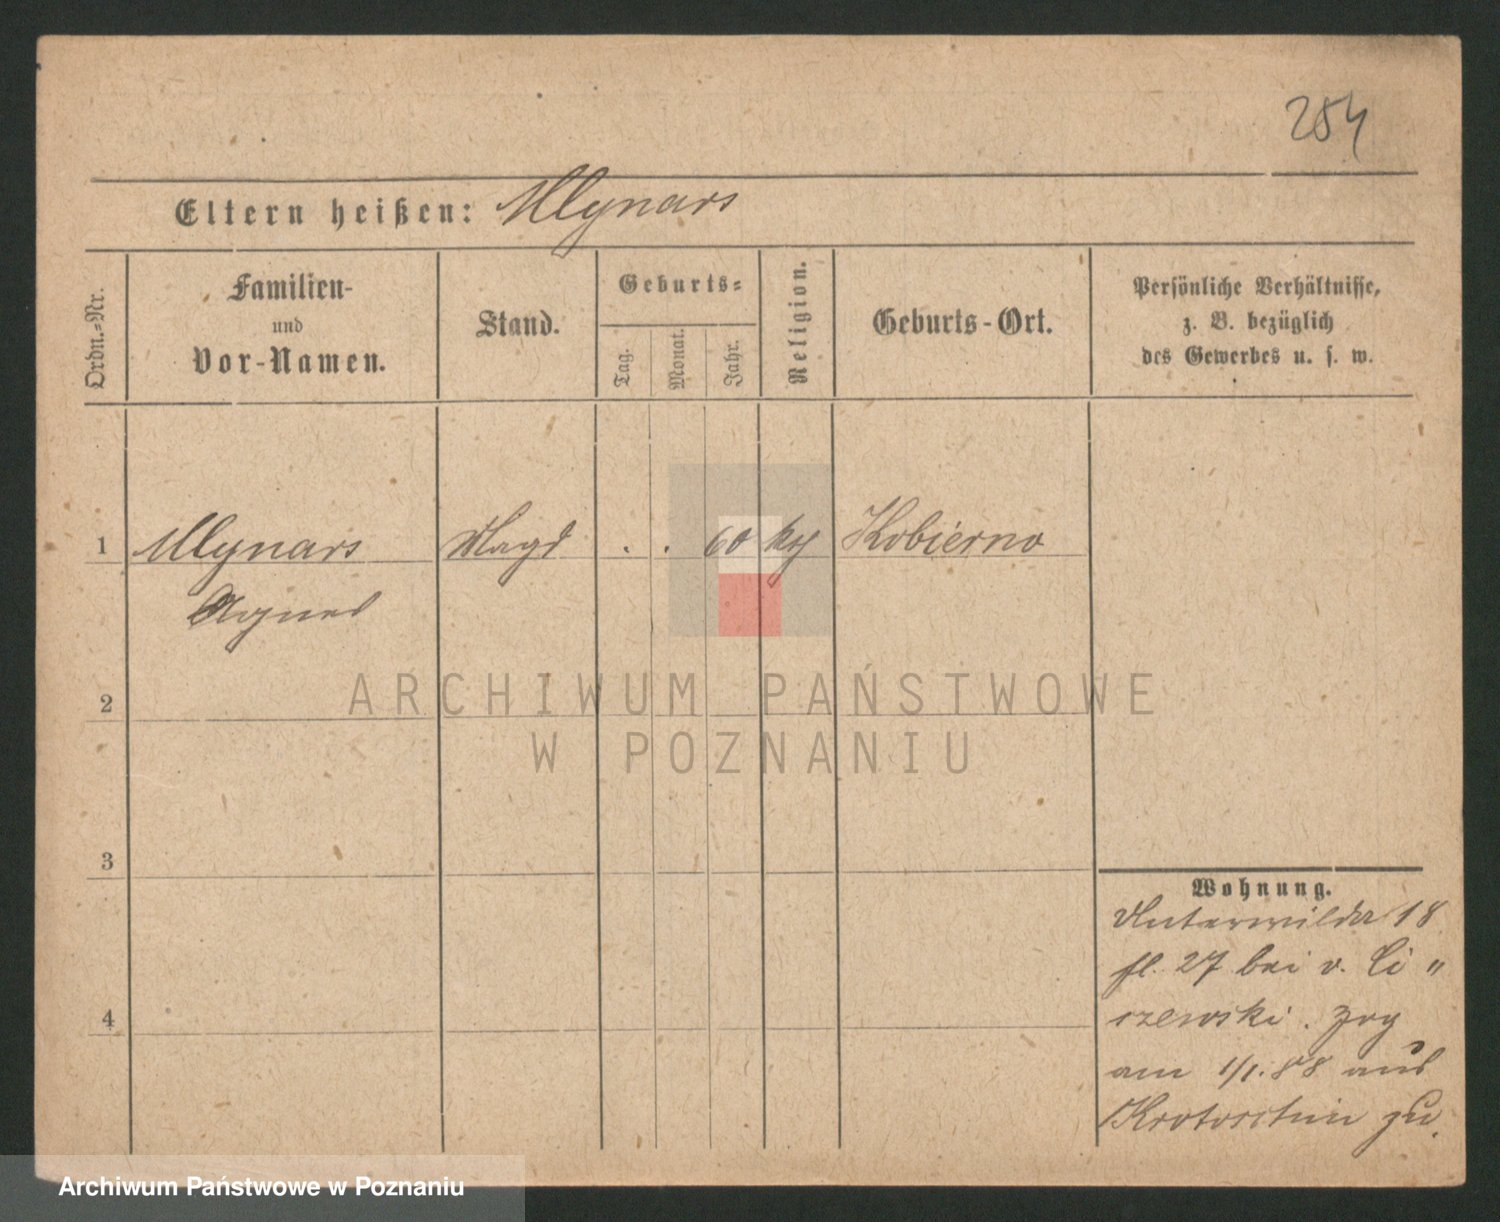 254
Eltern heißen: Mlynars
Ordn.=Nr.
Familien-
und
Vor-Namen.
Stand.
Geburts=
Tag.
Monat.
Jahr.
Religion.
Geburts-Ort.
Persönliche Verhältnisse,
z. B. bezüglich
des Gewerbes u. s. w.
1 Mlynars Magd . . 60 Kobierno
Agnes
2
3
4
Wohnung.
Unterwilda 18
fl. 27 bei v. Li „
szewski. Zog
am 1/1. 88 aus
Krotoschin zu.
ARCHIWUM PAŃSTWOWE
W POZNANIU
Archiwum Państwowe w Poznaniu